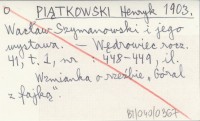 O PIĄTKOWSKI Henryk 1903.
Wacław Szymanowski i jego
wystawa. - Wędrowiec rocz.
41, t. 1, nr : 448-449, il.
Wzmianka o rzeźbie "Góral
z fajką."
B1/040/0367